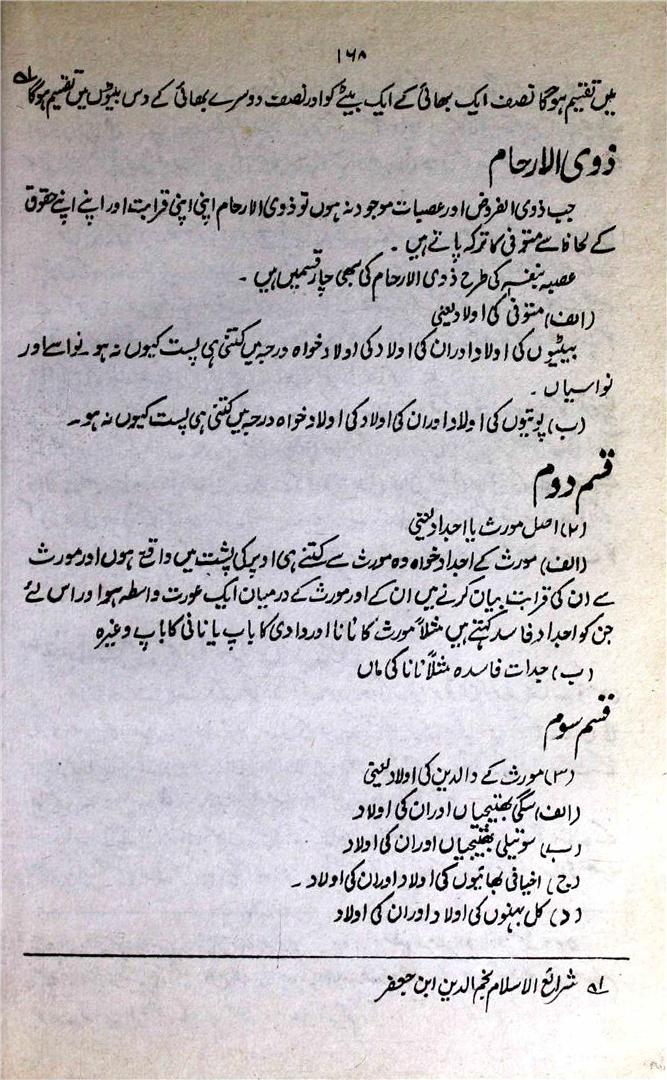 ۱۶۸
میں تقسیم ہوجگا نصف ایک بھائی کے ایک بیٹے کو اور نصف دوسرے بھائی کے دس بیٹوں میں تقسیم ہوگا ؎۱
ذوی الارحام
جب ذوی الفروض اور عصبات موجود نہ ہوں تو ذوی الارحام اپنی اپنی قرابت اور اپنے اپنے حقوق
کے لحاظ سے متوفی کا ترکہ پاتے ہیں ۔
عصبہ بنفسہٖ کی طرح ذوی الارحام کی بھی چار قسمیں ہیں ۔
(الف) متوفی کی اولاد یعنی
بیٹیوں کی اولاد اور ان کی اولاد کی اولاد خواہ درجہ میں کتنی ہی پست کیوں نہ ہو نواسے اور
نواسیاں ۔
(ب) پوتیوں کی اولاد اور ان کی اولاد کی اولاد خواہ درجہ میں کتنی ہی پست کیوں نہ ہو ۔
قسم دوم
(۲) اصل مورث یا اجداد یعنی
(الف) مورث کے اجداد خواہ وہ مورث سے کتنے ہی اوپر کی پشت میں واقع ہوں اور مورث
سے ان کی قرابت بیان کرنے میں ان کے اور مورث کے درمیان ایک عورت واسطہ ہو اور اس لئے
جن کو اجداد فاسد کہتے ہیں مثلاً مورث کا نانا اور دادی کا باپ یا نانی کا باپ وغیرہ
(ب) جدات فاسدہ مثلاً نانا کی ماں
قسم سوم
(۳) مورث کے والدین کی اولاد یعنی
(الف) سگی بھتیجیاں اور ان کی اولاد
(ب) سوتیلی بھتیجیاں اور ان کی اولاد
(ج) اخیافی بھائیوں کی اولاد اور ان کی اولاد ۔
(د) کل بہنوں کی اولاد اور ان کی اولاد
؎۱ شرائع الاسلام نجم الدین ابن جعفر